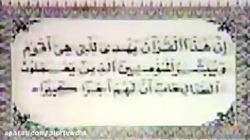 إن هذا القرآن يهدى للتى هى أقوم
ويبشر المؤمنين الذين يعملون
الصالحات أن لهم أجرا كبيرا